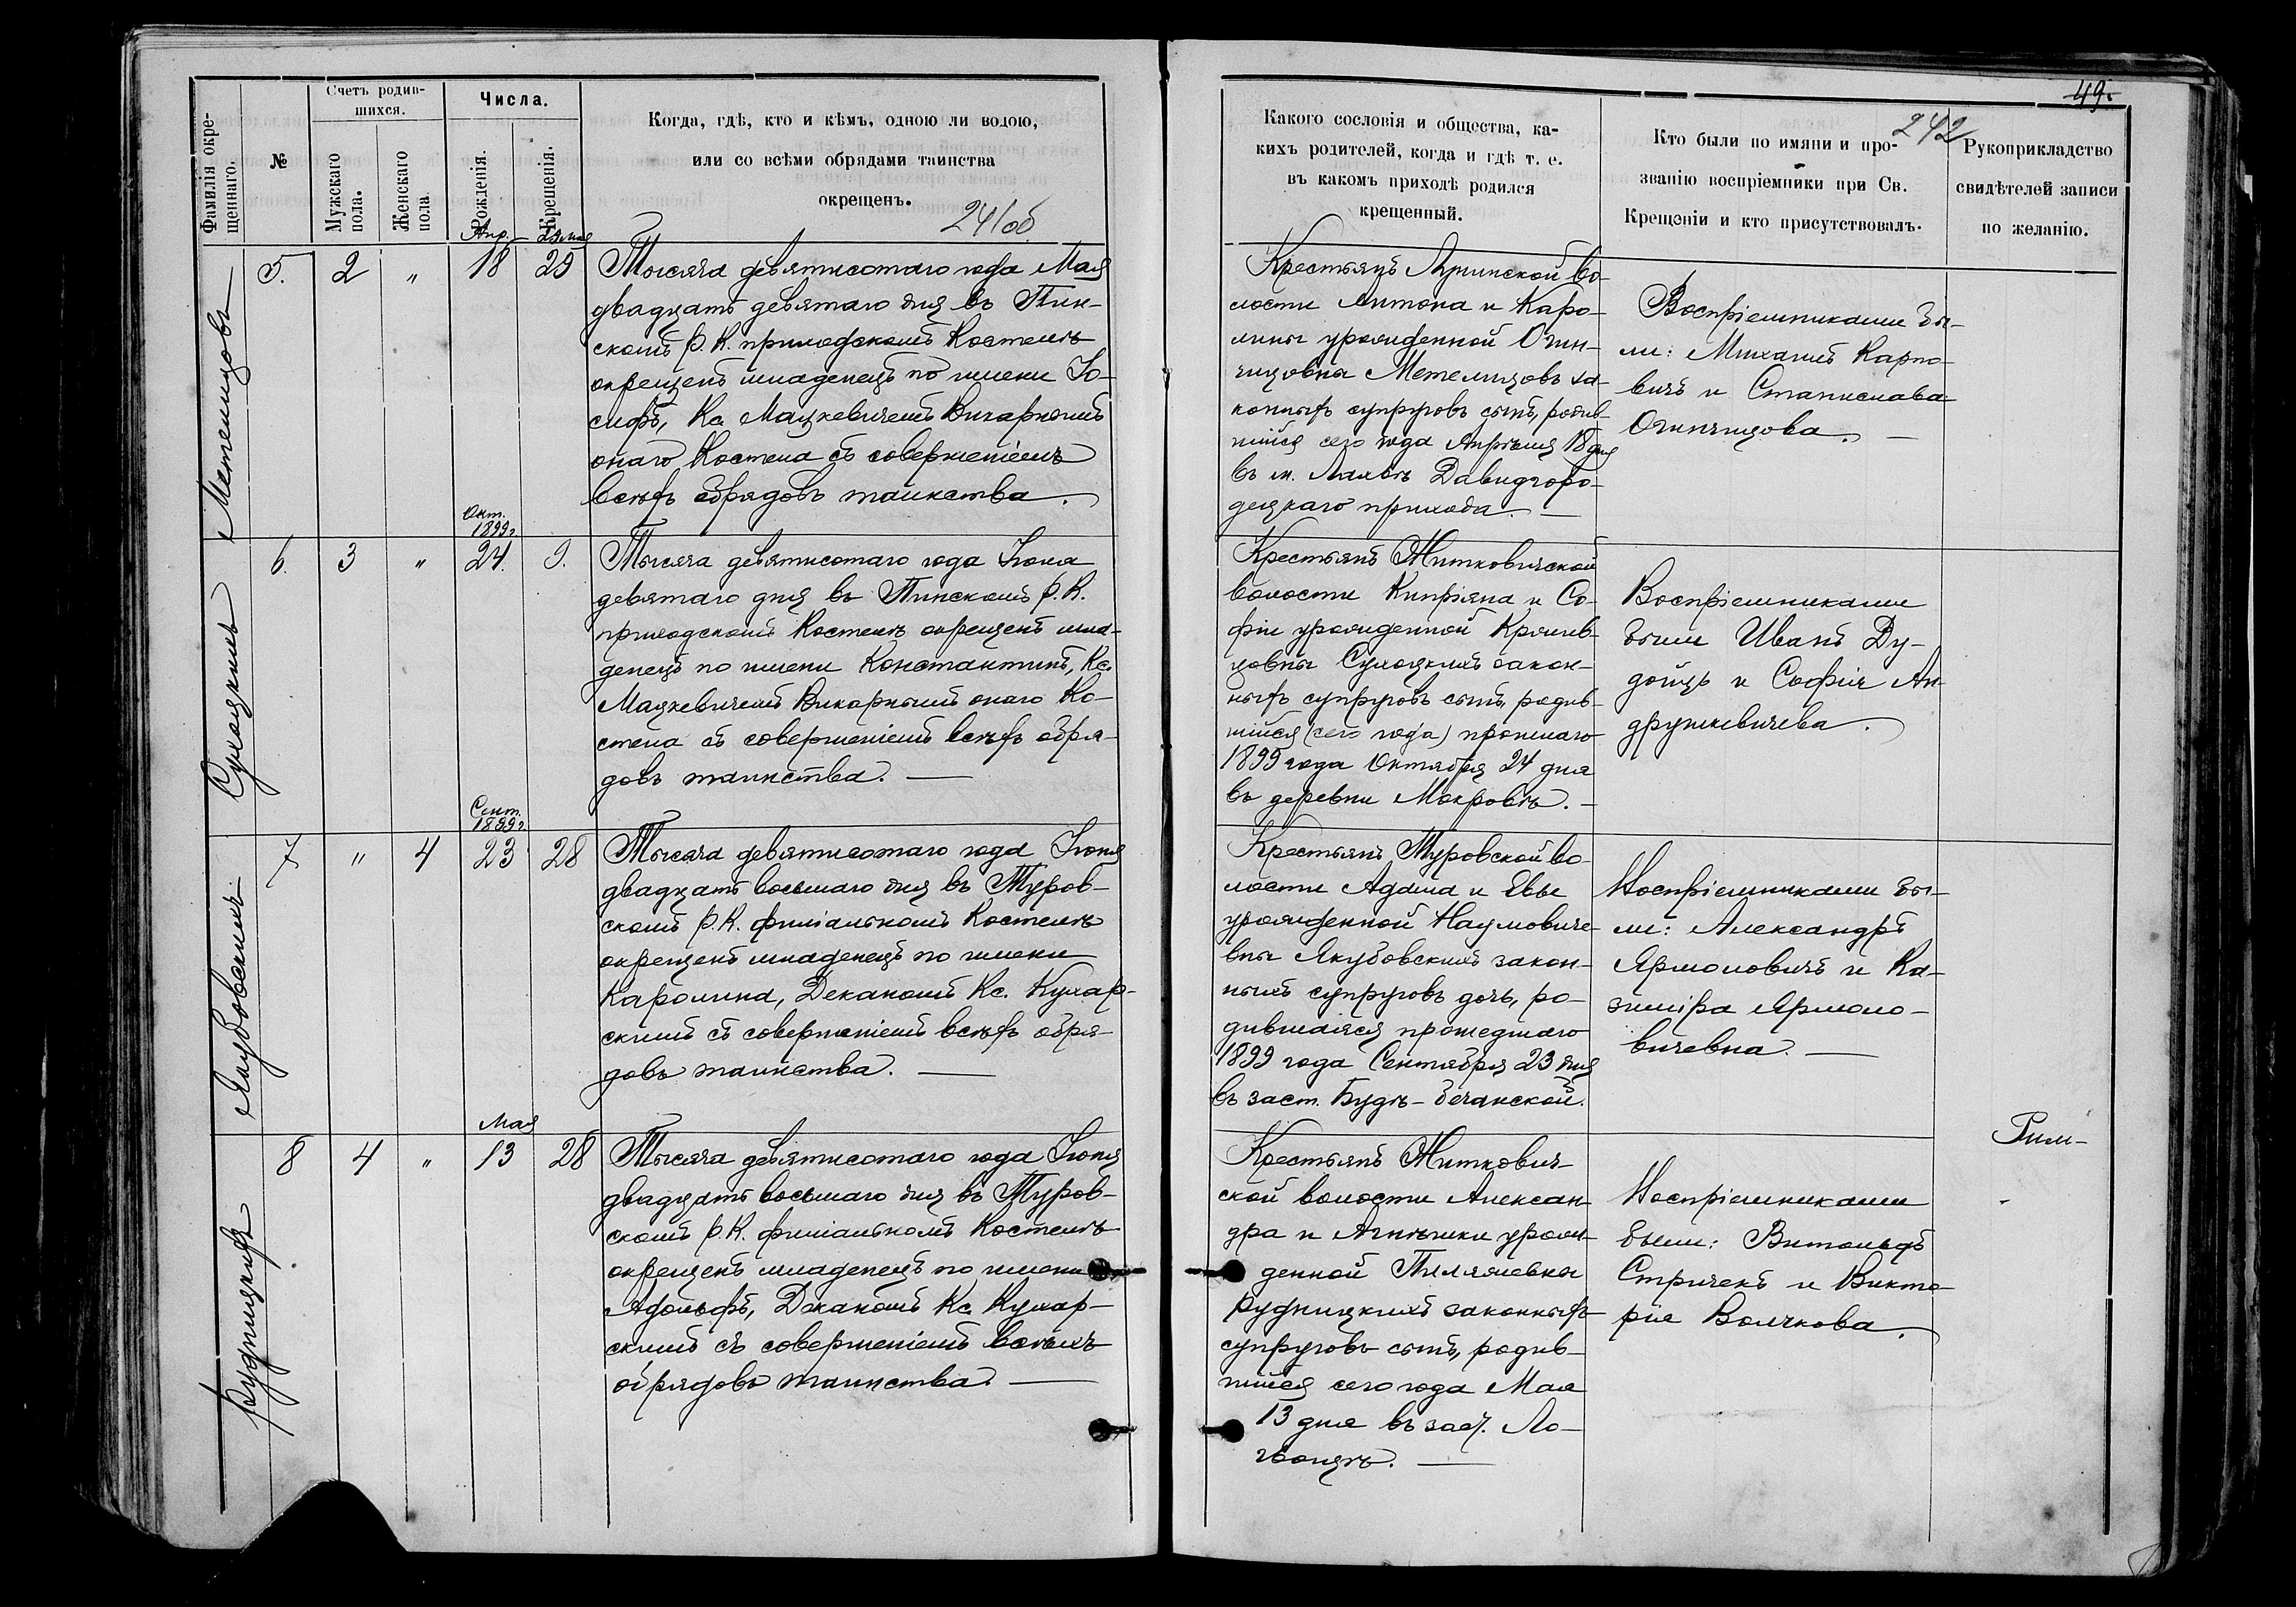 49.
242
Фамилія окрещеннаго.
№
Счетъ родив-
шихся.
Мужскаго
пола.
Женскаго
пола
Числа.
Рожденія.
Крещенія.
Когда, гдѣ, кто и кѣмъ, одною ли водою,
или со всѣми обрядами таинства
окрещенъ.
241об
Какого сословія и общества, ка-
кихъ родителей, когда и гдѣ т. е.
въ какомъ приходѣ родился
крещенный.
Кто были по имяни и про-
званію воспріемники при Св.
Крещеніи и кто присутствовалъ.
Рукоприкладство
свидѣтелей записи
по желанію.
Метелицовъ
5. 2 „
Апр.
18
29
Тысяча девятисотаго года Мая
двадцать девятаго дня въ Пин-
скомъ Р. К. приходскомъ Костелѣ
окрещенъ младенецъ по имени Іо-
сифъ, Кс. Мацкевичемъ Викарнымъ
онаго Костела съ совершеніемъ
всѣхъ обрядовъ таинства.
Крестьянъ Лунинской во-
лости Антона и Каро-
лины урожденной
Метелицовъ за-
конныхъ супруговъ сынъ, родив-
шійся сего года Апрѣля 18 дня
въ м. Лахвѣ Давидгоро-
децкаго прихода. —
Воспріемниками бы-
ли: Михаилъ Карпо-
вичъ и Станислава
Сухоцкихъ
6. 3 „
Окт.
1899г.
24.
9.
Тысяча девятисотаго года Іюня
девятаго дня въ Пинскомъ Р. К.
приходскомъ Костелѣ окрещенъ мла-
денецъ по имени Константинъ, Кс.
Мацкевичемъ Викарнымъ онаго Ко-
стела съ совершеніемъ всѣхъ обря-
довъ таинства. —
Крестьянъ Житковичской
волости Кипріяна и Со-
фіи урожденной
Сухоцкихъ закон-
ныхъ супруговъ сынъ, родив-
шійся (сего года) прошлаго
1899 года Октября 24 дня
въ деревни Мокровѣ. —
Воспріемниками
были Иванъ Ду-
и Софія Ан-
друшкевичева.
Якубовскихъ
7 „ 4
Сент.
1899г.
23
28
Тысяча девятисотаго года Іюня
двадцать восьмаго дня въ Туров-
скомъ Р. К. филіальномъ Костелѣ
окрещенъ младенецъ по имени
Каролина, Деканомъ Кс. Кухар-
скимъ съ совершеніемъ всѣхъ обря-
довъ таинства. —
Крестьянъ Туровской во-
лости Адама и Евы
урожденной Наумовиче-
вны Якубовскихъ закон-
ныхъ супруговъ дочь, ро-
дившаяся прошедшаго
1899 года Сентября 23 дня
въ заст. Будѣ-
Воспріемниками бы-
ли: Александръ
Ярмоловичъ и Ка-
зиміра Ярмоло-
вичевна. —
Рудницкихъ
8 4 „
Мая
13
28
Тысяча девятисотаго года Іюня
двадцать восьмаго дня въ Туров-
скомъ Р. К. филіальномъ Костелѣ
окрещенъ младенецъ по имени
Адольфъ, Деканомъ Кс. Кухар-
скимъ съ совершеніемъ всѣхъ
обрядовъ таинства. —
Крестьянъ Житкович-
ской волости Алексан-
дра и Агнѣшки урож-
денной
Рудницкихъ законныхъ
супруговъ сынъ, родив-
шійся сего года Мая
13 дня въ заст.
Воспріемниками
были: Витольдъ
Стричекъ и Викто-
рія Волчкова.
Рим-